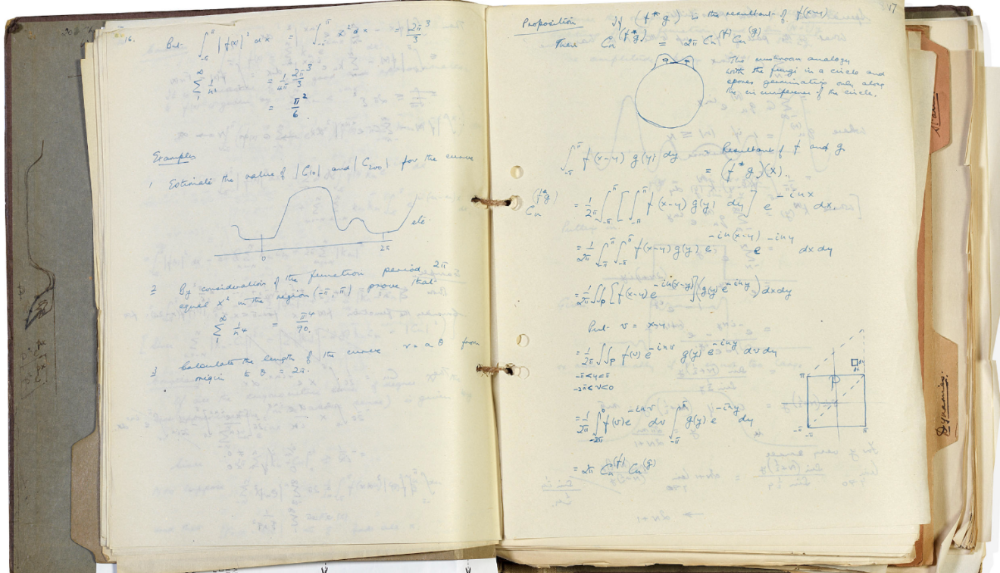 16.
But ∫_{-π}^{π} |f(x)|² dx = ∫_{-π}^{π} x² dx = 2π³/3
∑ 1/n² = 1/2π 2π³/3
= π²/6
Examples
1 Estimate the value of |C₁₀| and |C₁₀₀| for the curve
etc
0 2π
2 By consideration of the function period 2π
equal x² in the region (-π, π) prove that
∑ 1/n⁴ = π⁴/90.
3 Calculate the length of the curve r = a θ from
origin to θ = 2π.
17
Proposition If (f*g) is the resultant of f(x)
Then Cₙ^(f*g) = 2π Cₙ^(f) Cₙ^(g)
The analogy
with the fungi in a circle and
spores germinating only along
the circumference of the circle.
∫_{-π}^{π} f(x-y) g(y) dy = Resultant of f and g
= (f*g)(x)
Cₙ^(f*g) = 1/2π ∫_{-π}^{π} [∫_{-π}^{π} f(x-y) g(y) dy] e^{-inx} dx
= 1/2π ∫_{-π}^{π} ∫_{-π}^{π} f(x-y) g(y) e^{-in(x-y)} e^{-iny} dx dy
= 1/2π ∫∫ [f(x-y) e^{-in(x-y)}] (g(y) e^{-iny}) dx dy
Put v = x-y
= 1/2π ∫∫ f(v) e^{-inv} g(y) e^{-iny} dv dy
-π<y<π
-2π<v<0
= 1/2π ∫_{-2π}^{0} f(v) e^{-inv} dv ∫_{-π}^{π} g(y) e^{-iny} dy
= 2π Cₙ^(f) Cₙ^(g)
π
-π π
Dynamics.